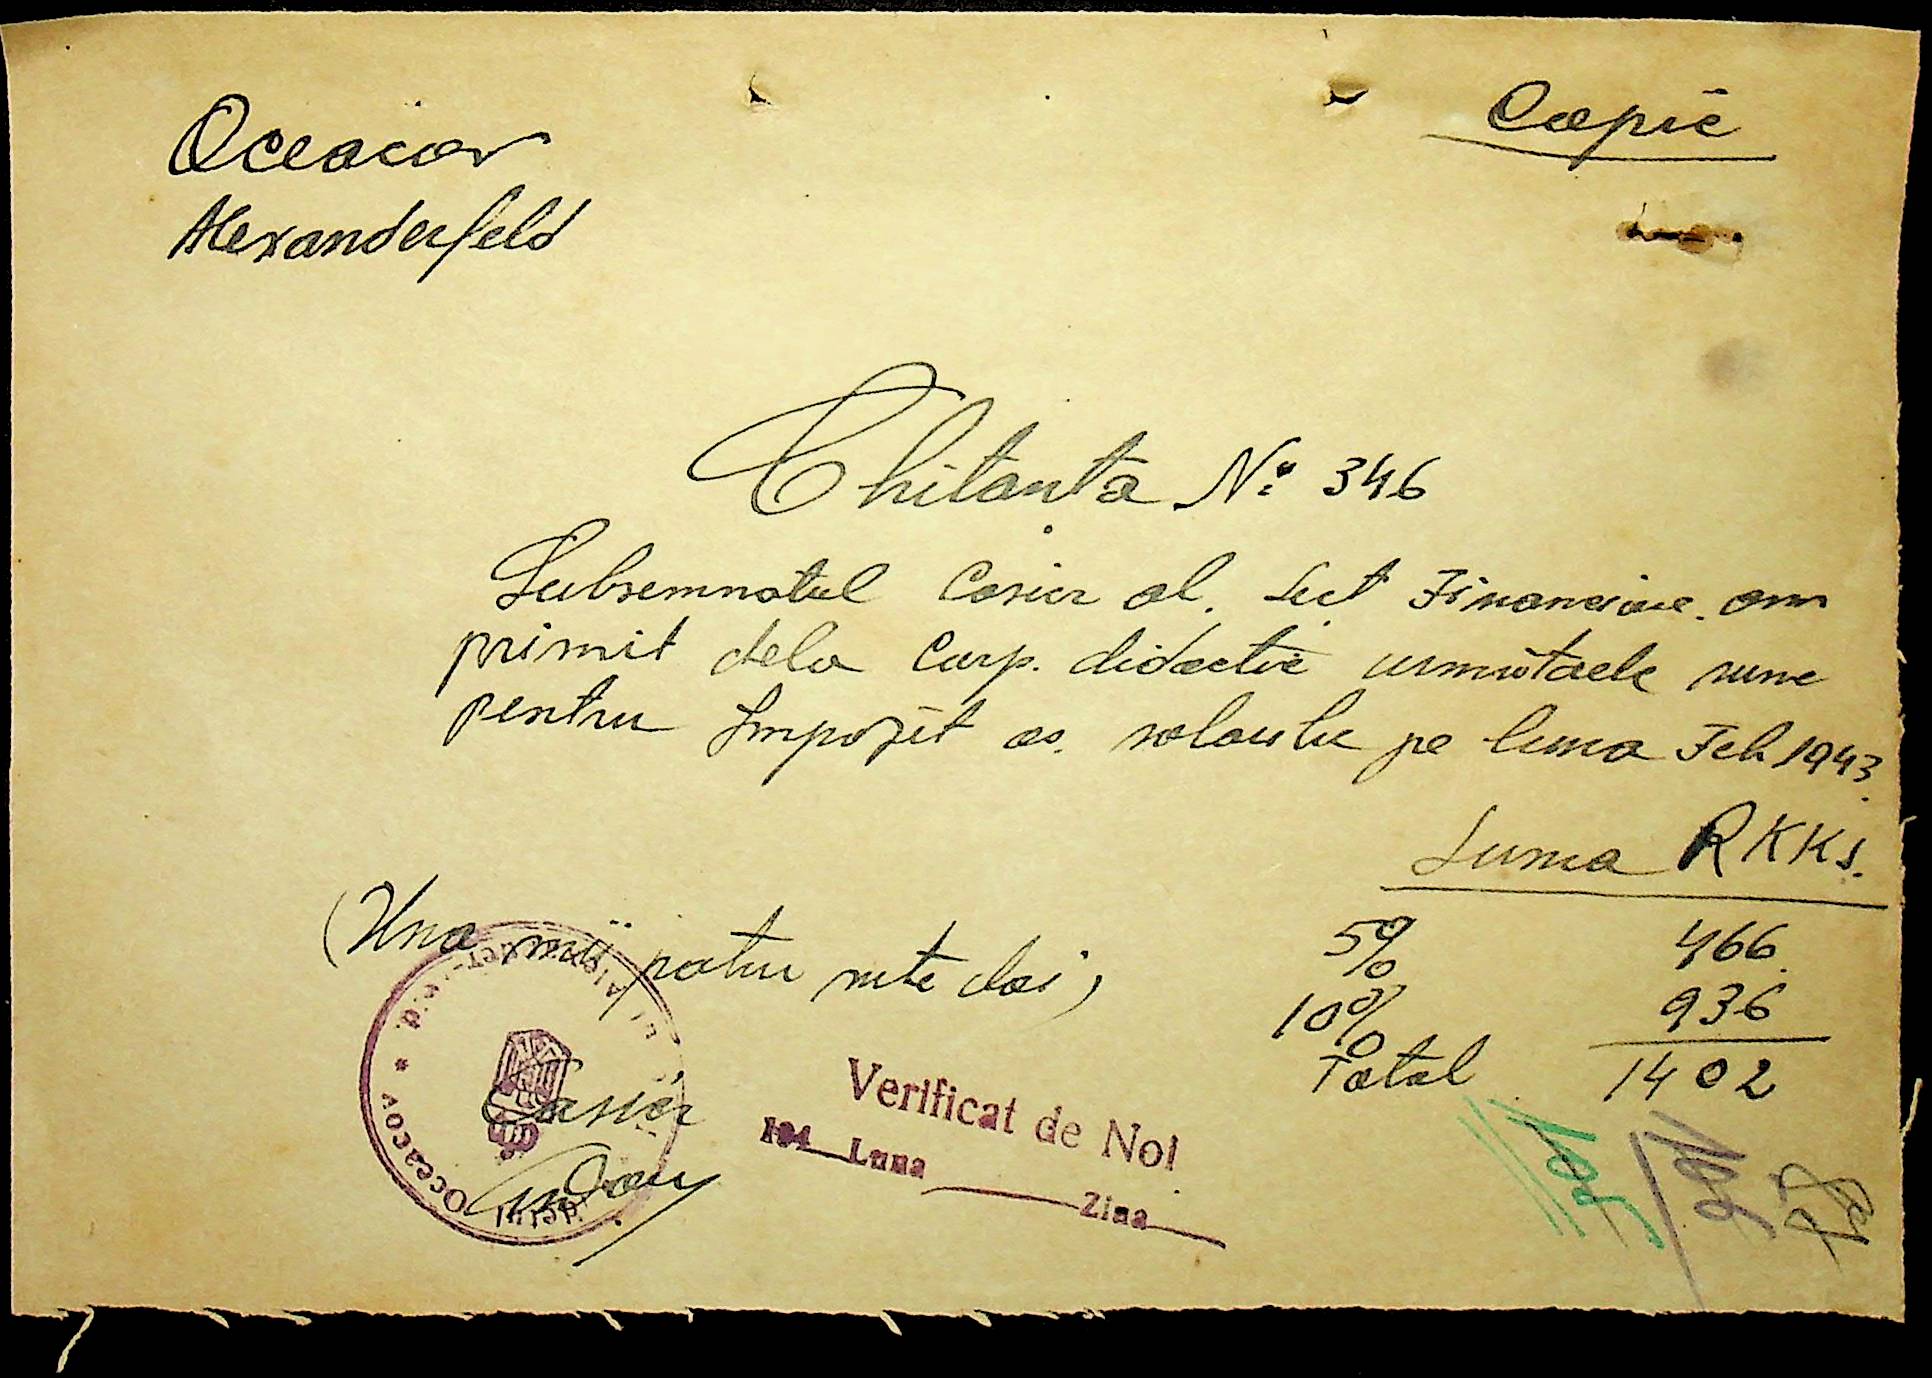 Oceacov
Copie
Alexanderfeld
Chitanta No 346
Subsemnatul Casier al. Sect Financiare. am
primit dela Corp. didactic urmatoarele sume
pentru Impozit as. salarului pe luna Feb 1943.
Suma RKKS.
5% 466.
(Una mii patru sute doi)
10% 936
Total 1402
Casier
Verificat de Noi
194 Luna Zina
Oceacov